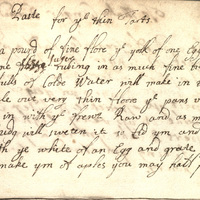 Paste
for ye thin Tarts
a pound of fine flore ye yolk of one Egg
one of suger rubing in as much fine bu
ulls of Colde Water will make in
le out very thin floore ye pans w
in with ye Raw and as m
will sweten it to tast ym and
th ye white of an Egg and grate
make ym of aples you may